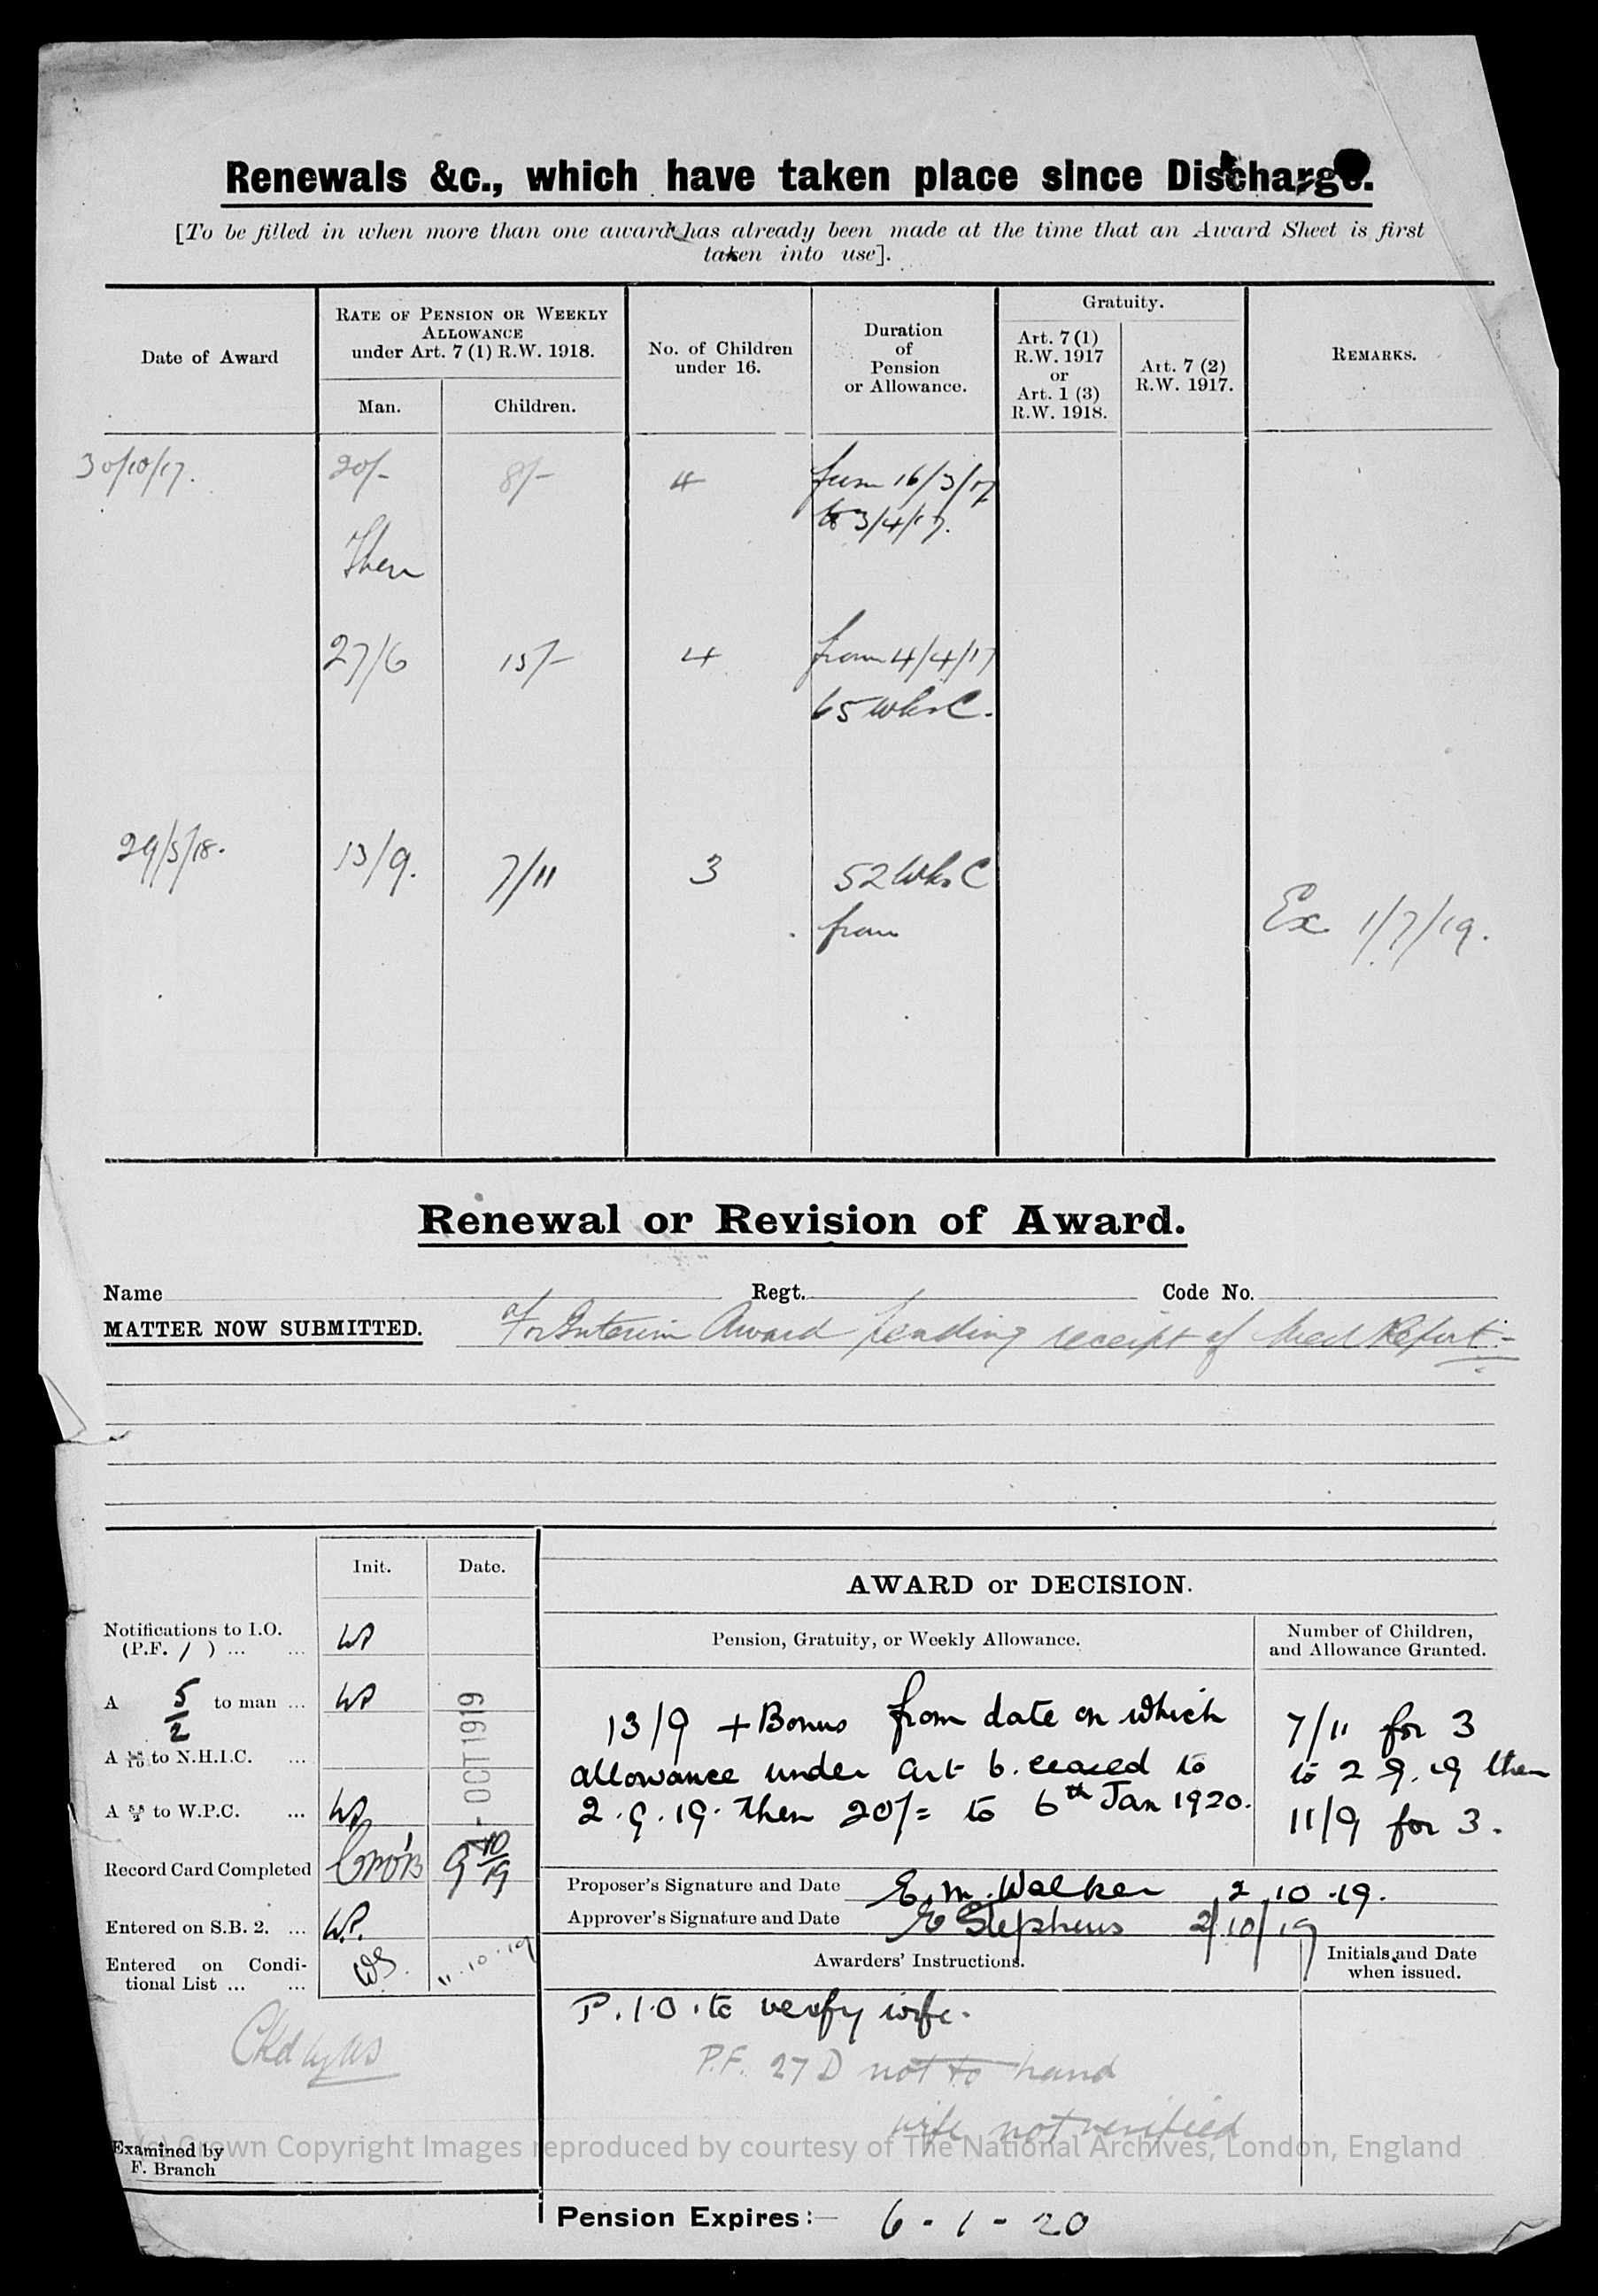 Renewals &c., which have taken place since Discharge.
[To be filled in when more than one award has already been made at the time that an Award Sheet is first
taken into use].
Date of Award
RATE OF PENSION OR WEEKLY
ALLOWANCE
under Art. 7 (1) R.W. 1918.
Man.
Children.
No. of Children
under 16.
Duration
of
Pension
or Allowance.
Gratuity.
Art. 7 (1)
R.W. 1917
or
Art. 1 (3)
R.W. 1918.
Art. 7 (2)
R.W. 1917.
REMARKS.
30/10/17. 20/- 8/- 4 from 16/3/17
to 3/4/17.
Then
27/6 15/- 4 from 4/4/17
65 wks C.
29/5/18. 13/9. 7/11 3 52 Wks C
from
Ex 1/7/19.
Renewal or Revision of Award.
Name Regt. Code No.
MATTER NOW SUBMITTED. For Interim Award pending receipt of Med Report:-
Init. Date.
Notifications to I.O.
(P.F. / ) ... ...
A 5/2 to man ...
A to N.H.I.C. ...
A to W.P.C. ...
- OCT 1919
Record Card Completed 9 10/19
Entered on S.B. 2. ... W.P.
Entered on Condi-
tional List ... ... WS. 11.10.19
Examined by
F. Branch
AWARD or DECISION.
Pension, Gratuity, or Weekly Allowance.
Number of Children,
and Allowance Granted.
13/9 + Bonus from date on which
allowance under Art 6. ceased to
2.9.19. then 20/= to 6th Jan 1920.
7/11 for 3
to 2.9.19 then
11/9 for 3.
Proposer's Signature and Date E. M. Walker 2.10.19.
Approver's Signature and Date E Stephens 2/10/19
Awarders' Instructions.
Initials and Date
when issued.
P.I.O. to verify wife.
P.F. 27 D not to hand
wife not verified
(c) Crown Copyright Images reproduced by courtesy of The National Archives, London, England
Pension Expires:— 6 - 1 - 20